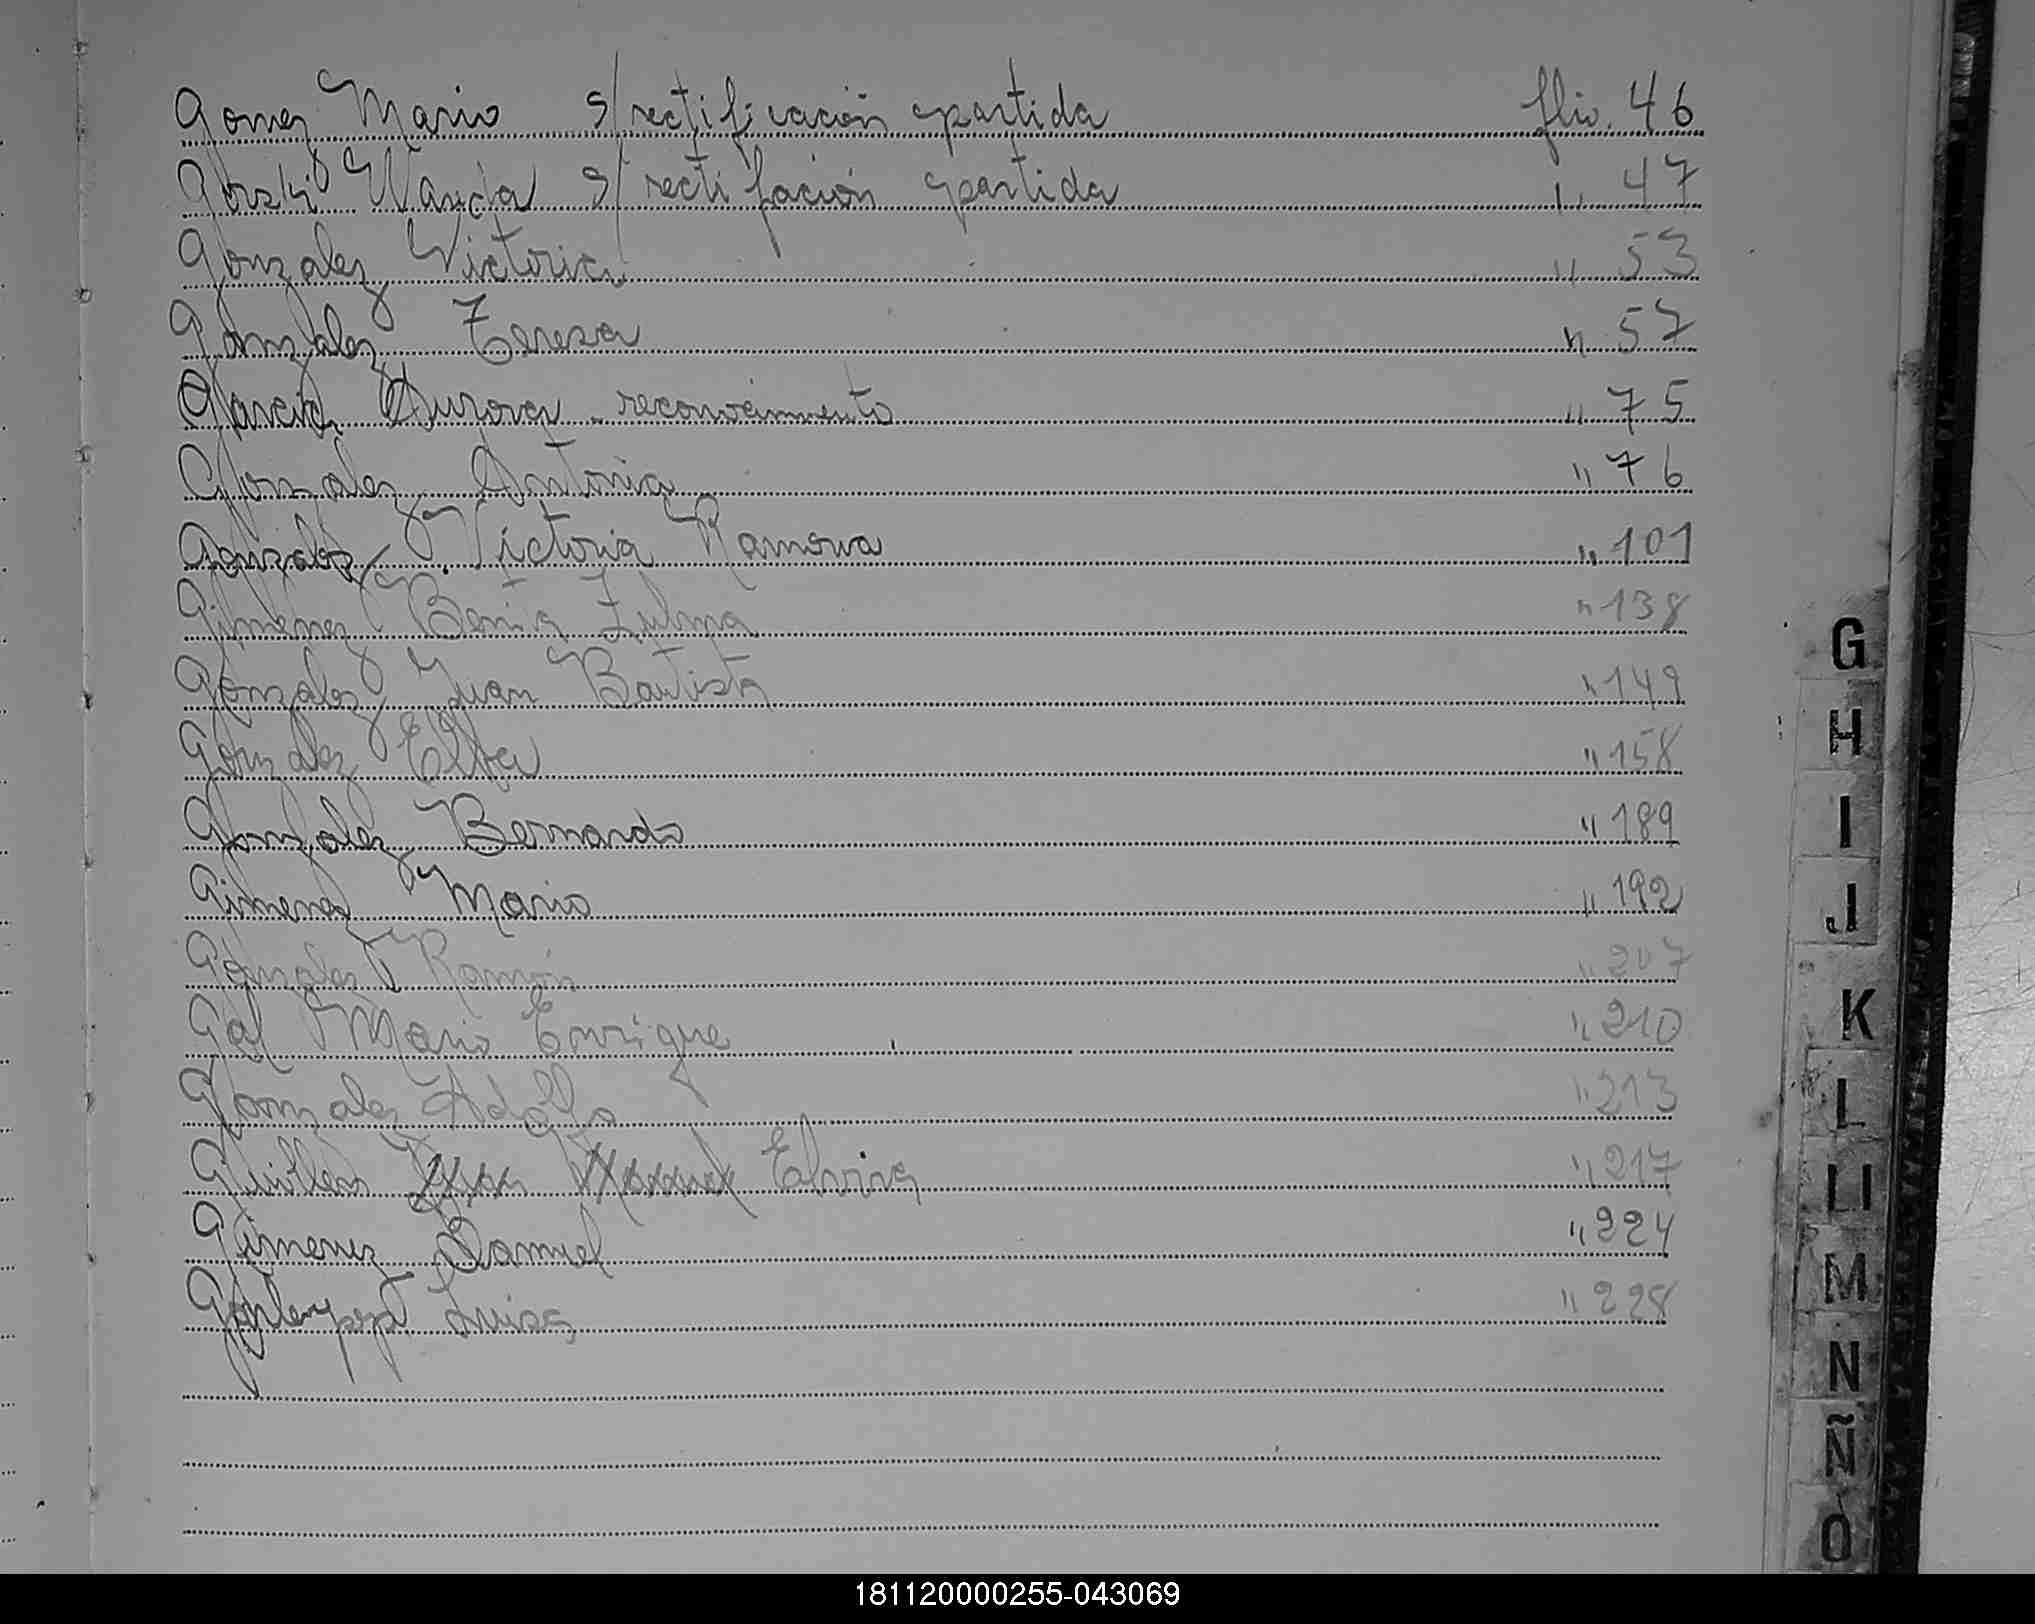 Gomez Mario s/rectificación partida flio. 46
Gorski Wanda s/rectifación partida " 47
Gonzalez Victoria " 53
Gonzalez Teresa " 57
Garcia Aurora - reconocimiento " 75
Gonzalez Antonia " 76
Gonzalez Victoria Ramona " 101
Gimenez Benita Zulma " 138
Gonzalez Juan Bautista " 149
Gonzalez Elba " 158
Gonzalez Bernardo " 189
Gimenez Mario " 192
Gonzalez Ramón " 207
Gal Mario Enrique " 210
Gonzalez Adolfo " 213
Guillen Elvira " 217
Gimenez Samuel " 224
Luisa " 228
G
H
I
J
K
L
Ll
M
N
Ñ
O
181120000255-043069